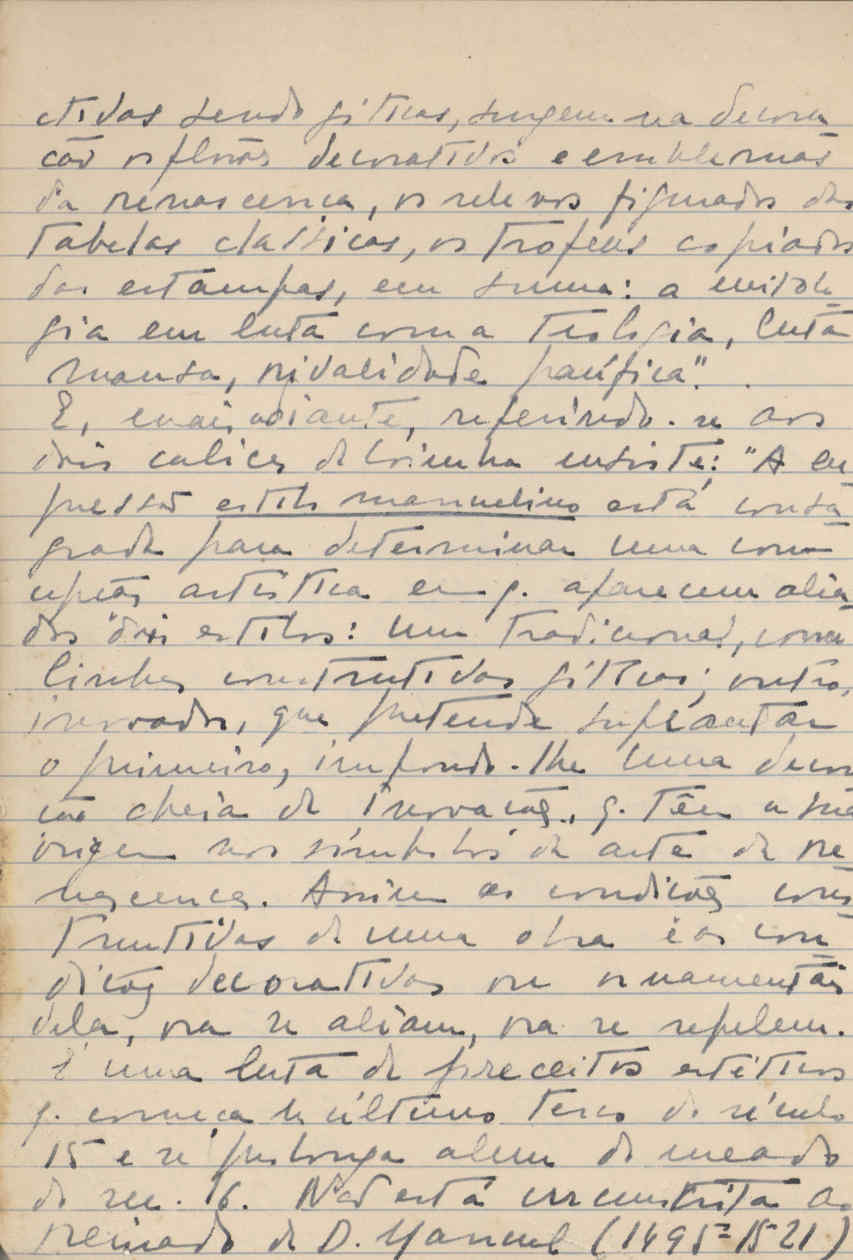 ctivas sendo góticas, surgem na decora
ção os florões decorativos e emblemas
da renascença, os relevos figurados das
tabelas classicas, os trofeus copiados
das estampas, em suma: a mitolo
gia em luta com a teologia, luta
mansa, rivalidade pacífica".
E, mais adiante, referindo-se aos
dois calices de Coimbra insiste: "A ex
pressão estilo manuelino está consa
grada para determinar uma com
cepção artistica em q. aparecem alia
dos dois estilos: um tradicional, com
linhas construtivas góticas; outro,
inovador, que pretende suplantar
o primeiro, impondo-lhe uma decora
ção cheia de inovações, q. têm a sua
origem nos símbolos da arte da re
nascença. Assim as condições cons
trutivas de uma obra e as con
dições decorativas ou ornamentais
dela, ora se aliam, ora se repelem.
É uma luta de preceitos estéticos
q. começa no último terço do século
15 e se prolonga alem do meado
do sec. 16. Não está circunscrita ao
reinado de D. Manuel (1495=1521)